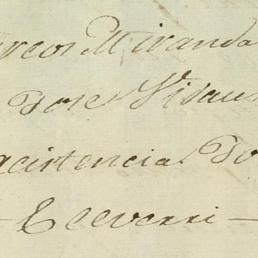 rcos Miranda
Jose Visau
acistencia Do
Eceverri